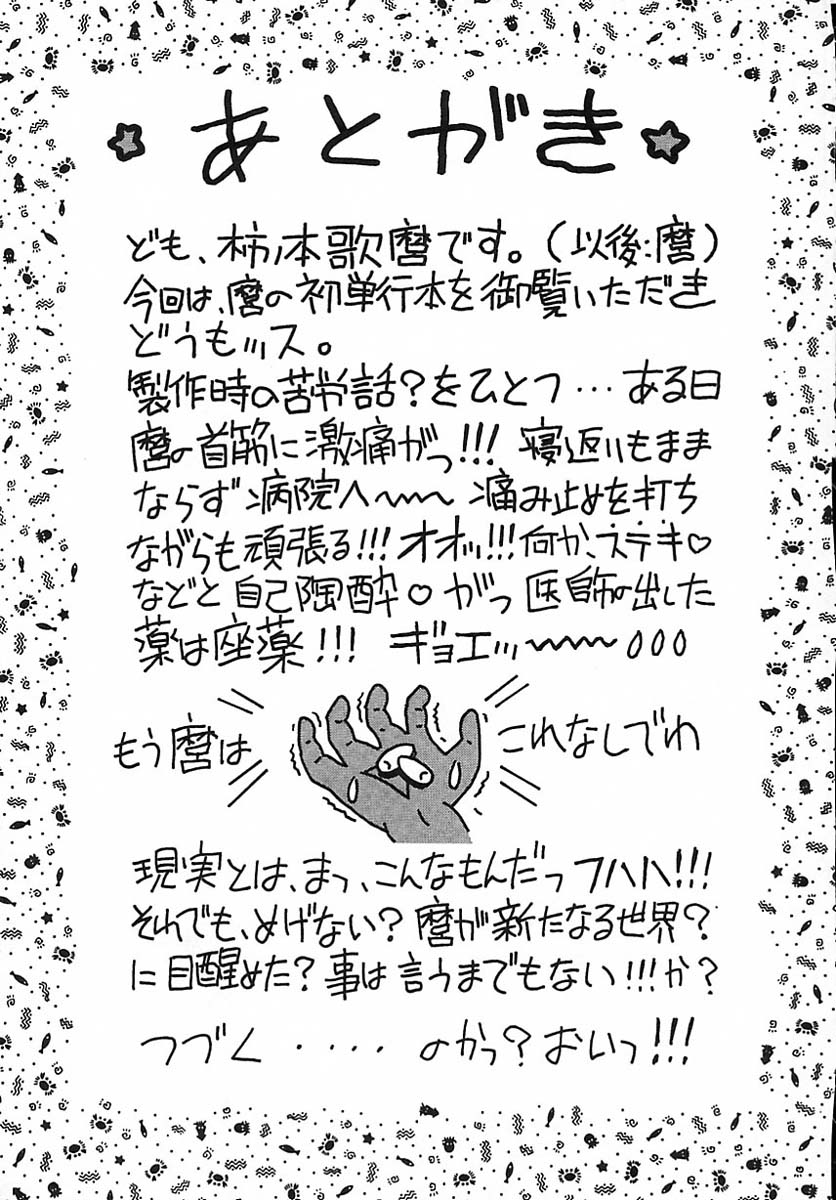 あとがき
ども、柿ノ本歌麿です。(以後:麿)
今回は、麿の初単行本を御覧いただき
どうもッス。
製作時の苦労話?をひとつ…ある日
麿の首筋に激痛がっ!!! 寝返りもまま
ならず病院へ〜〜 痛み止めを打ち
ながらも頑張る!!!オオッ!!!何か、ステキ♡
などと自己陶酔♡がっ医師の出した
薬は座薬!!! ギョエッ〜〜〜000
もう麿は これなしでわ
現実とは、まっ、こんなもんだっフハハ!!!
それでも、めげない?麿が新たなる世界?
に目醒めた?事は言うまでもない!!!か?
つづく・・・・のかっ?おいっ!!!